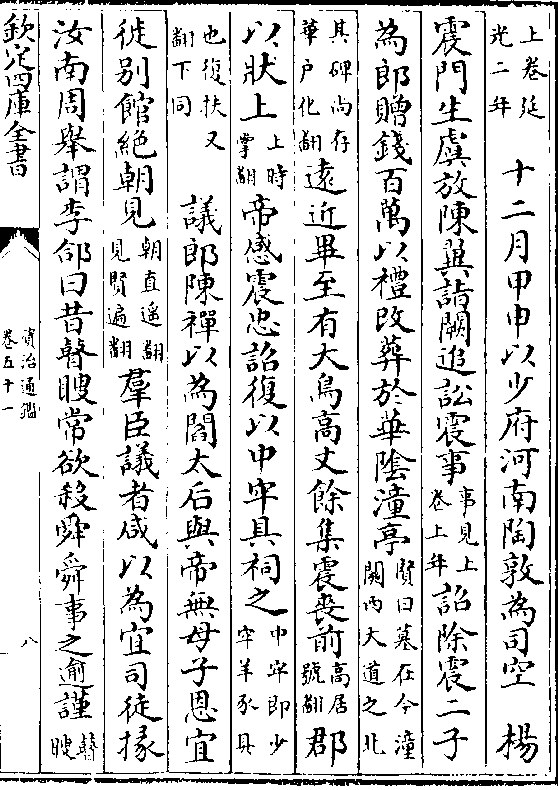 上卷延光二年 十二月甲申以少府河南陶敦為司空 楊
震門生虞放陳翼詣闕追訟震事事見上卷上年詔除震二子
為郎贈錢百萬以禮改葬於華陰潼亭賢曰墓在今潼關西大道之北
其碑尚存華户化翻遠近畢至有大鳥高丈餘集震喪前高居號翻郡
以狀上上時掌翻帝感震忠詔復以中牢具祠之中牢即少牢羊豕具
也復扶又翻下同 議郎陳禪以為閻太后與帝無母子恩宜
徙别館絶朝見朝直遥翻見賢遍翻羣臣議者咸以為宜司徒掾
汝南周舉謂李郃曰昔瞽瞍常欲殺舜舜事之逾謹瞽瞍
欽定四庫全書
資治通鑑
卷五十一
八